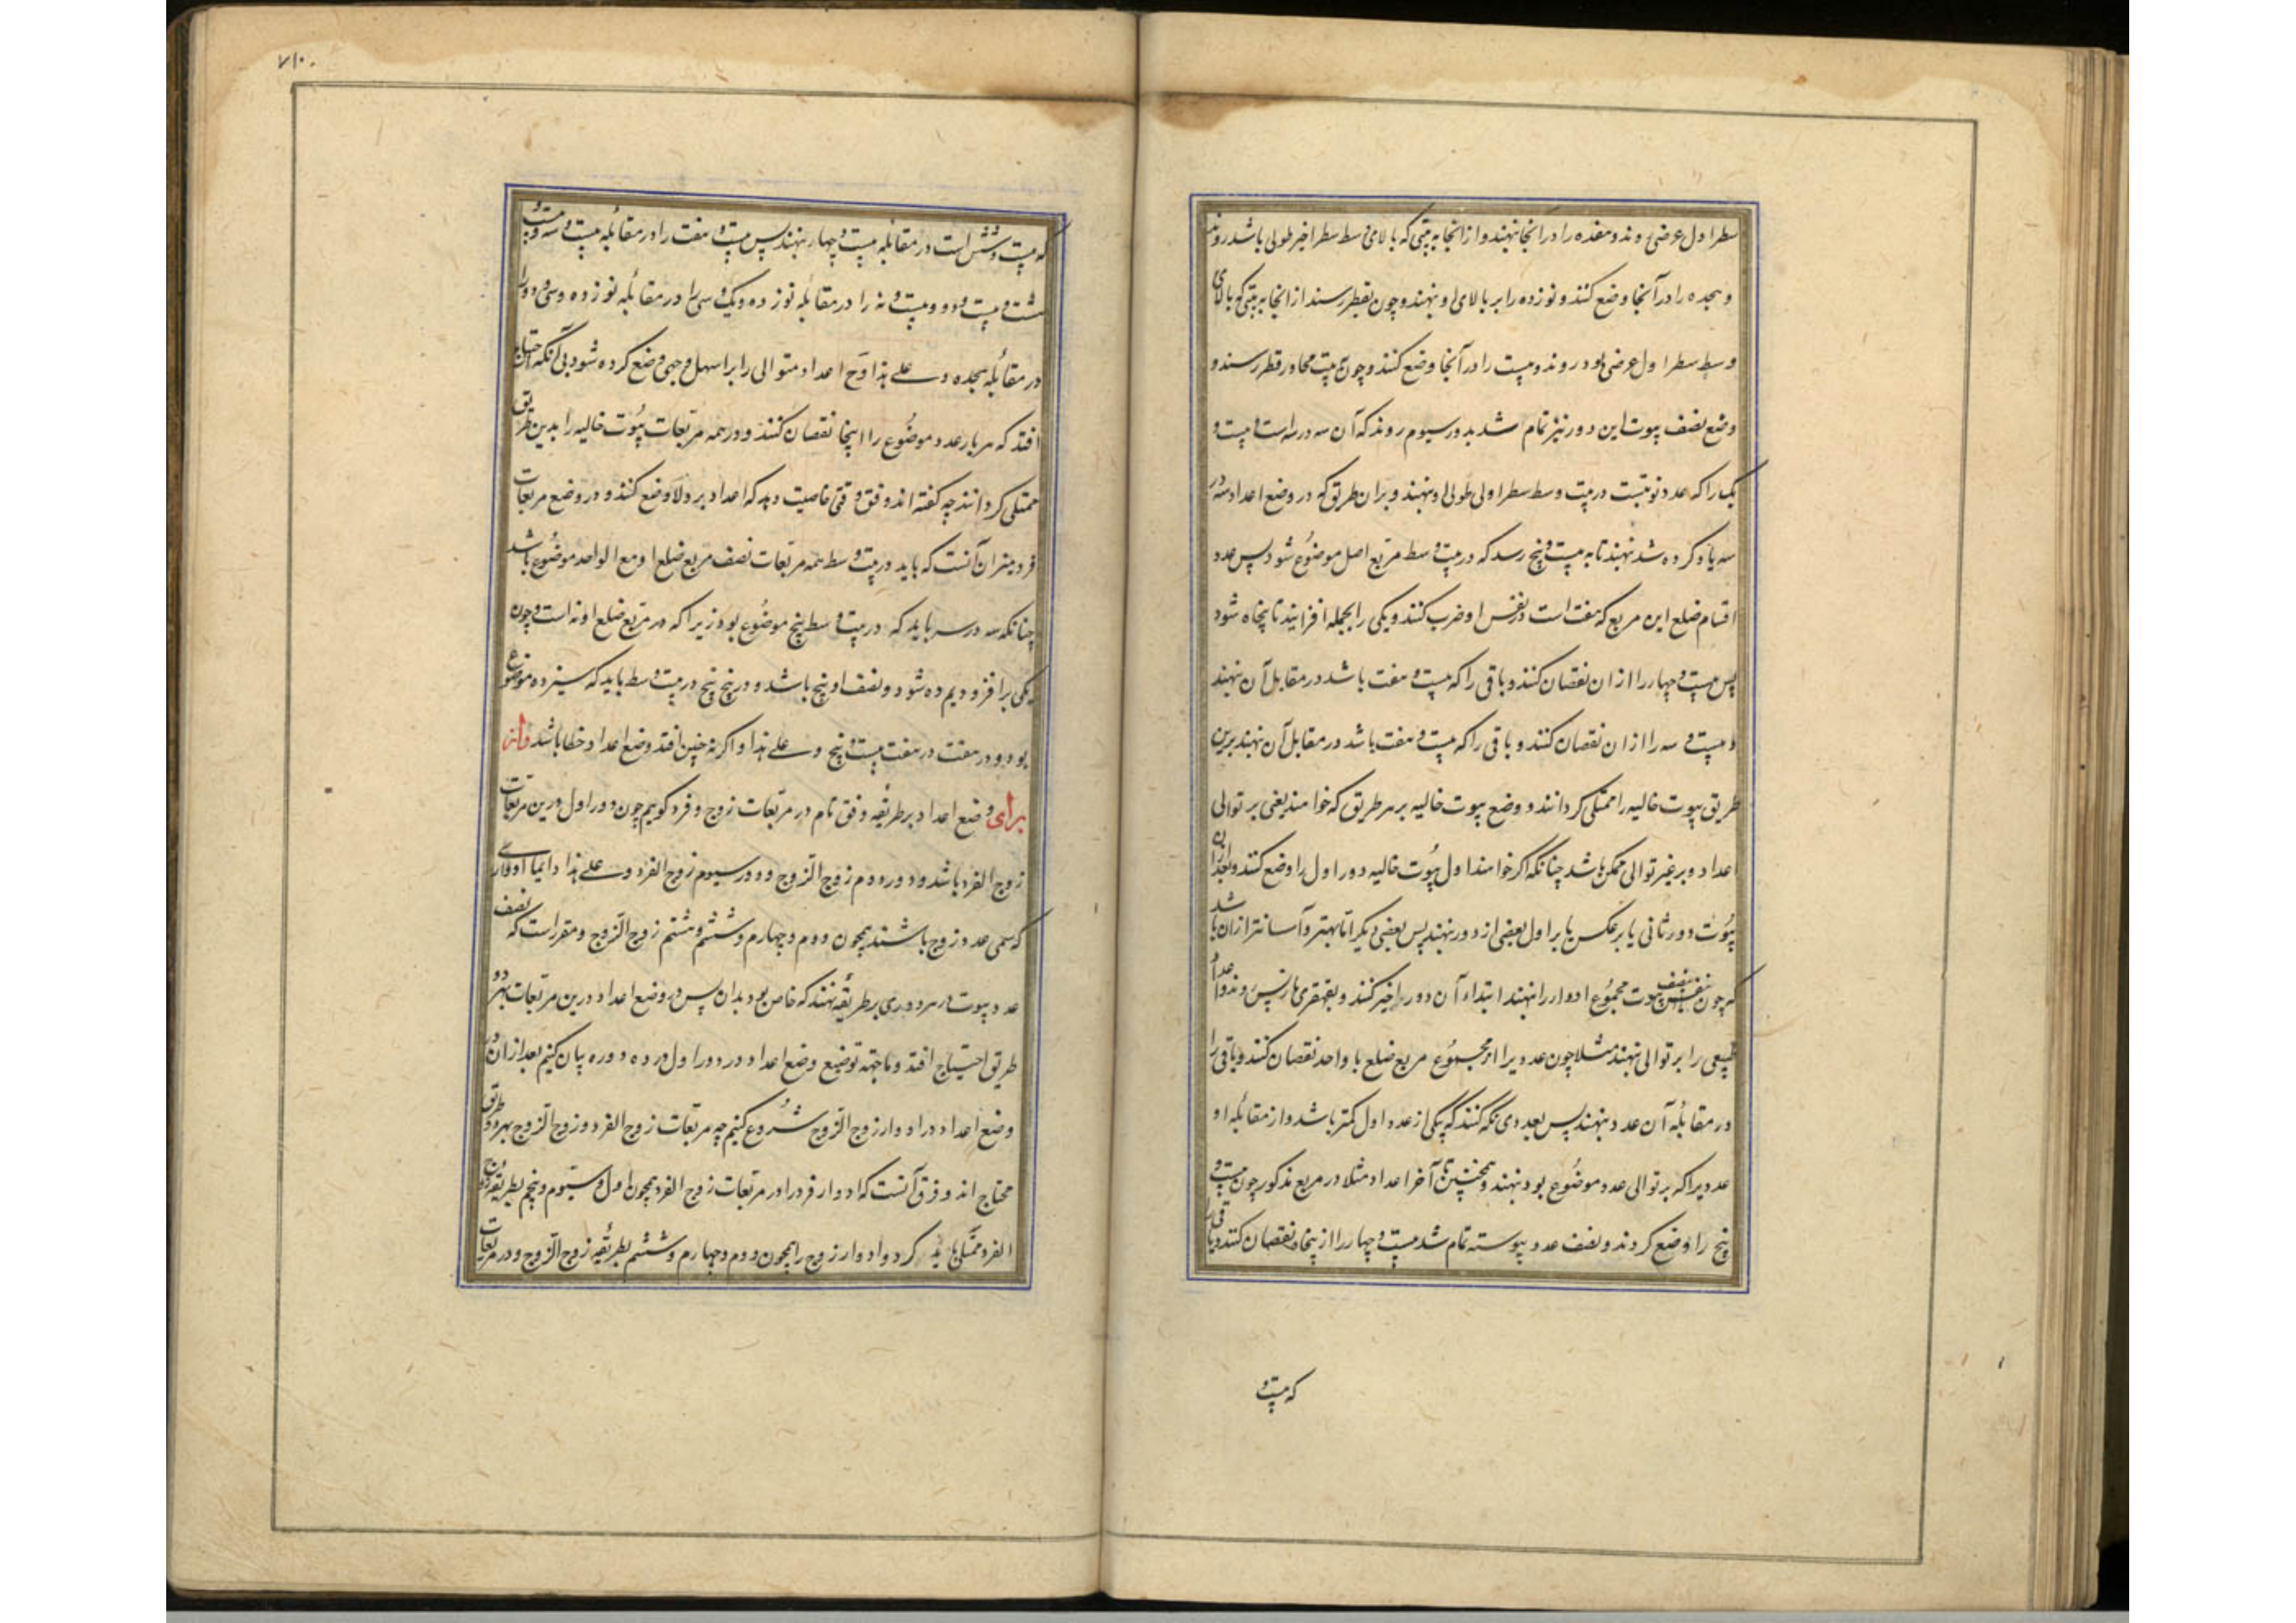 سطر اول عرضی روند و هفده را در آنجا نهند و از آنجا به بیتی که بالای وسط سطر اخیر طولی باشد روند
و هجده را در آنجا وضع کنند و نوزده را بر بالای او نهند و چون بقطر رسند از آنجا به بیتی که بالای
وسط سطر اول عرضی بود روند و بیست را در آنجا وضع کنند و چون بیت مجاور قطر رسند و
وضع نصف بیوت این دور نیز تمام شد بدور سیوم روند که آن سه در سه است و بیست و
یک را که عدد نوبتست در بیت وسط سطر اولی طولی او نهند و بران طریق که در وضع اعداد سه در
سه یاد کرده شد نهند تا به بیست و پنج رسد که در بیت وسط مربع اصل موضوع شود پس عدد
اقسام ضلع این مربع که هفت است در نفس او ضرب کنند و یکی را بجمله افزایند تا پنجاه شود
پس بیست و چهار را از ان نقصان کنند و باقی را که بیست و هفت باشد در مقابل آن نهند
و بیست و سه را از ان نقصان کنند و باقی را که بیست و هفت باشد در مقابل آن نهند برین
طریق بیوت خالیه را ممتلی کردانند و وضع بیوت خالیه بر هر طریق که خواهند یعنی بر توالی
اعداد و بر غیر توالی ممکن باشد چنانکه اکر خواهند اول بیوت خالیه دور اول را وضع کنند و بعد از ان
بیوت دور ثانی یا برعکس یا بر اول بعضی از دور نهند پس بعضی دیکر اما بهتر و آسانتر از ان باشد
که چون نصف بیوت مجموع ادوار را نهند ابتداء آن دور اخیر کنند و بقهقری باز پس روند و اعداد
طبیعی را بر توالی نهند مثلا چون عدد یرا از مجموع مربع ضلع با واحد نقصان کنند و باقی را
در مقابله آن عدد نهند پس بعددی نکه کنند که یکی از عدد اول کمتر باشد و از مقابله او
عدد یرا که بر توالی عدد موضوع بود نهند و همچنین تا آخر اعداد مثلا در مربع مذکور چون بیست و
پنج را وضع کردند و نصف عدد پیوسته تمام شد بیست و چهار را از پنجاه نقصان کنند و باقی را
که بیست و
۷۱۰
که بیست و شش است در مقابله بیست و چهار نهند پس بیست و هفت را در مقابله بیست و سه و بیست و
هشت و بیست و دو و بیست و نه را در مقابله نوزده و یک و سی را در مقابله نوزده و سی و دو را
در مقابله هجده و علی هذا و ح اعداد متوالی را بر اسهل وجهی وضع کرده شود بی آنکه احتیاج
افتد که هر بار عدد موضوع را اینجا نقصان کنند و در همه مربعات بیوت خالیه را بدین طریق
ممتلی کردانند چه کفته اند وفق وقتی خاصیت دهد که اعداد بر ولا وضع کنند و در وضع مربعات
فرد میزان آنست که باید در بیت وسط همه مربعات نصف مربع ضلع او مع الواحد موضوع باشد
چنانکه سه در سه باید که در بیت وسط پنج موضوع بود زیرا که مربع ضلع او نه است و چون
یکی بر افزودیم ده شود و نصف او پنج باشد و در پنج پنج در بیت وسط باید که سیزده موضوع
بود و در هفت در هفت بیست و پنج و علی هذا و اکر نه چنین افتد وضع اعداد خطا باشد و از
برای وضع اعداد بر طریقه وفق تام در مربعات زوج و فرد کوییم چون دور اول درین مربعات
زوج الفرد باشد و دور دوم زوج الزوج و دور سیوم زوج الفرد و علی هذا دایما ادواری
که سمی عدد زوج باشند همچون دوم و چهارم و ششم و هشتم زوج الزوج و مقرر است که نصف
عدد بیوت هر دوری بر طریقه نهند که خاص بود بدان پس در وضع اعداد درین مربعات بهر دو
طریق احتیاج افتد و ما جهه توضیح وضع اعداد در دور اول در ده دوره بیان کنیم بعد از ان در
وضع اعداد در ادوار زوج الزوج شروع کنیم چه مربعات زوج الفرد و زوج الزوج بهر دو طریق
محتاج اند و فرق آنست که ادوار فرد را در مربعات زوج الفرد همچون اول و سیوم و پنجم بطریقه زوج
الفرد ممتلی باید کرد و ادوار زوج را همچون دوم و چهارم و ششم بطریقه زوج الزوج و در مربعات